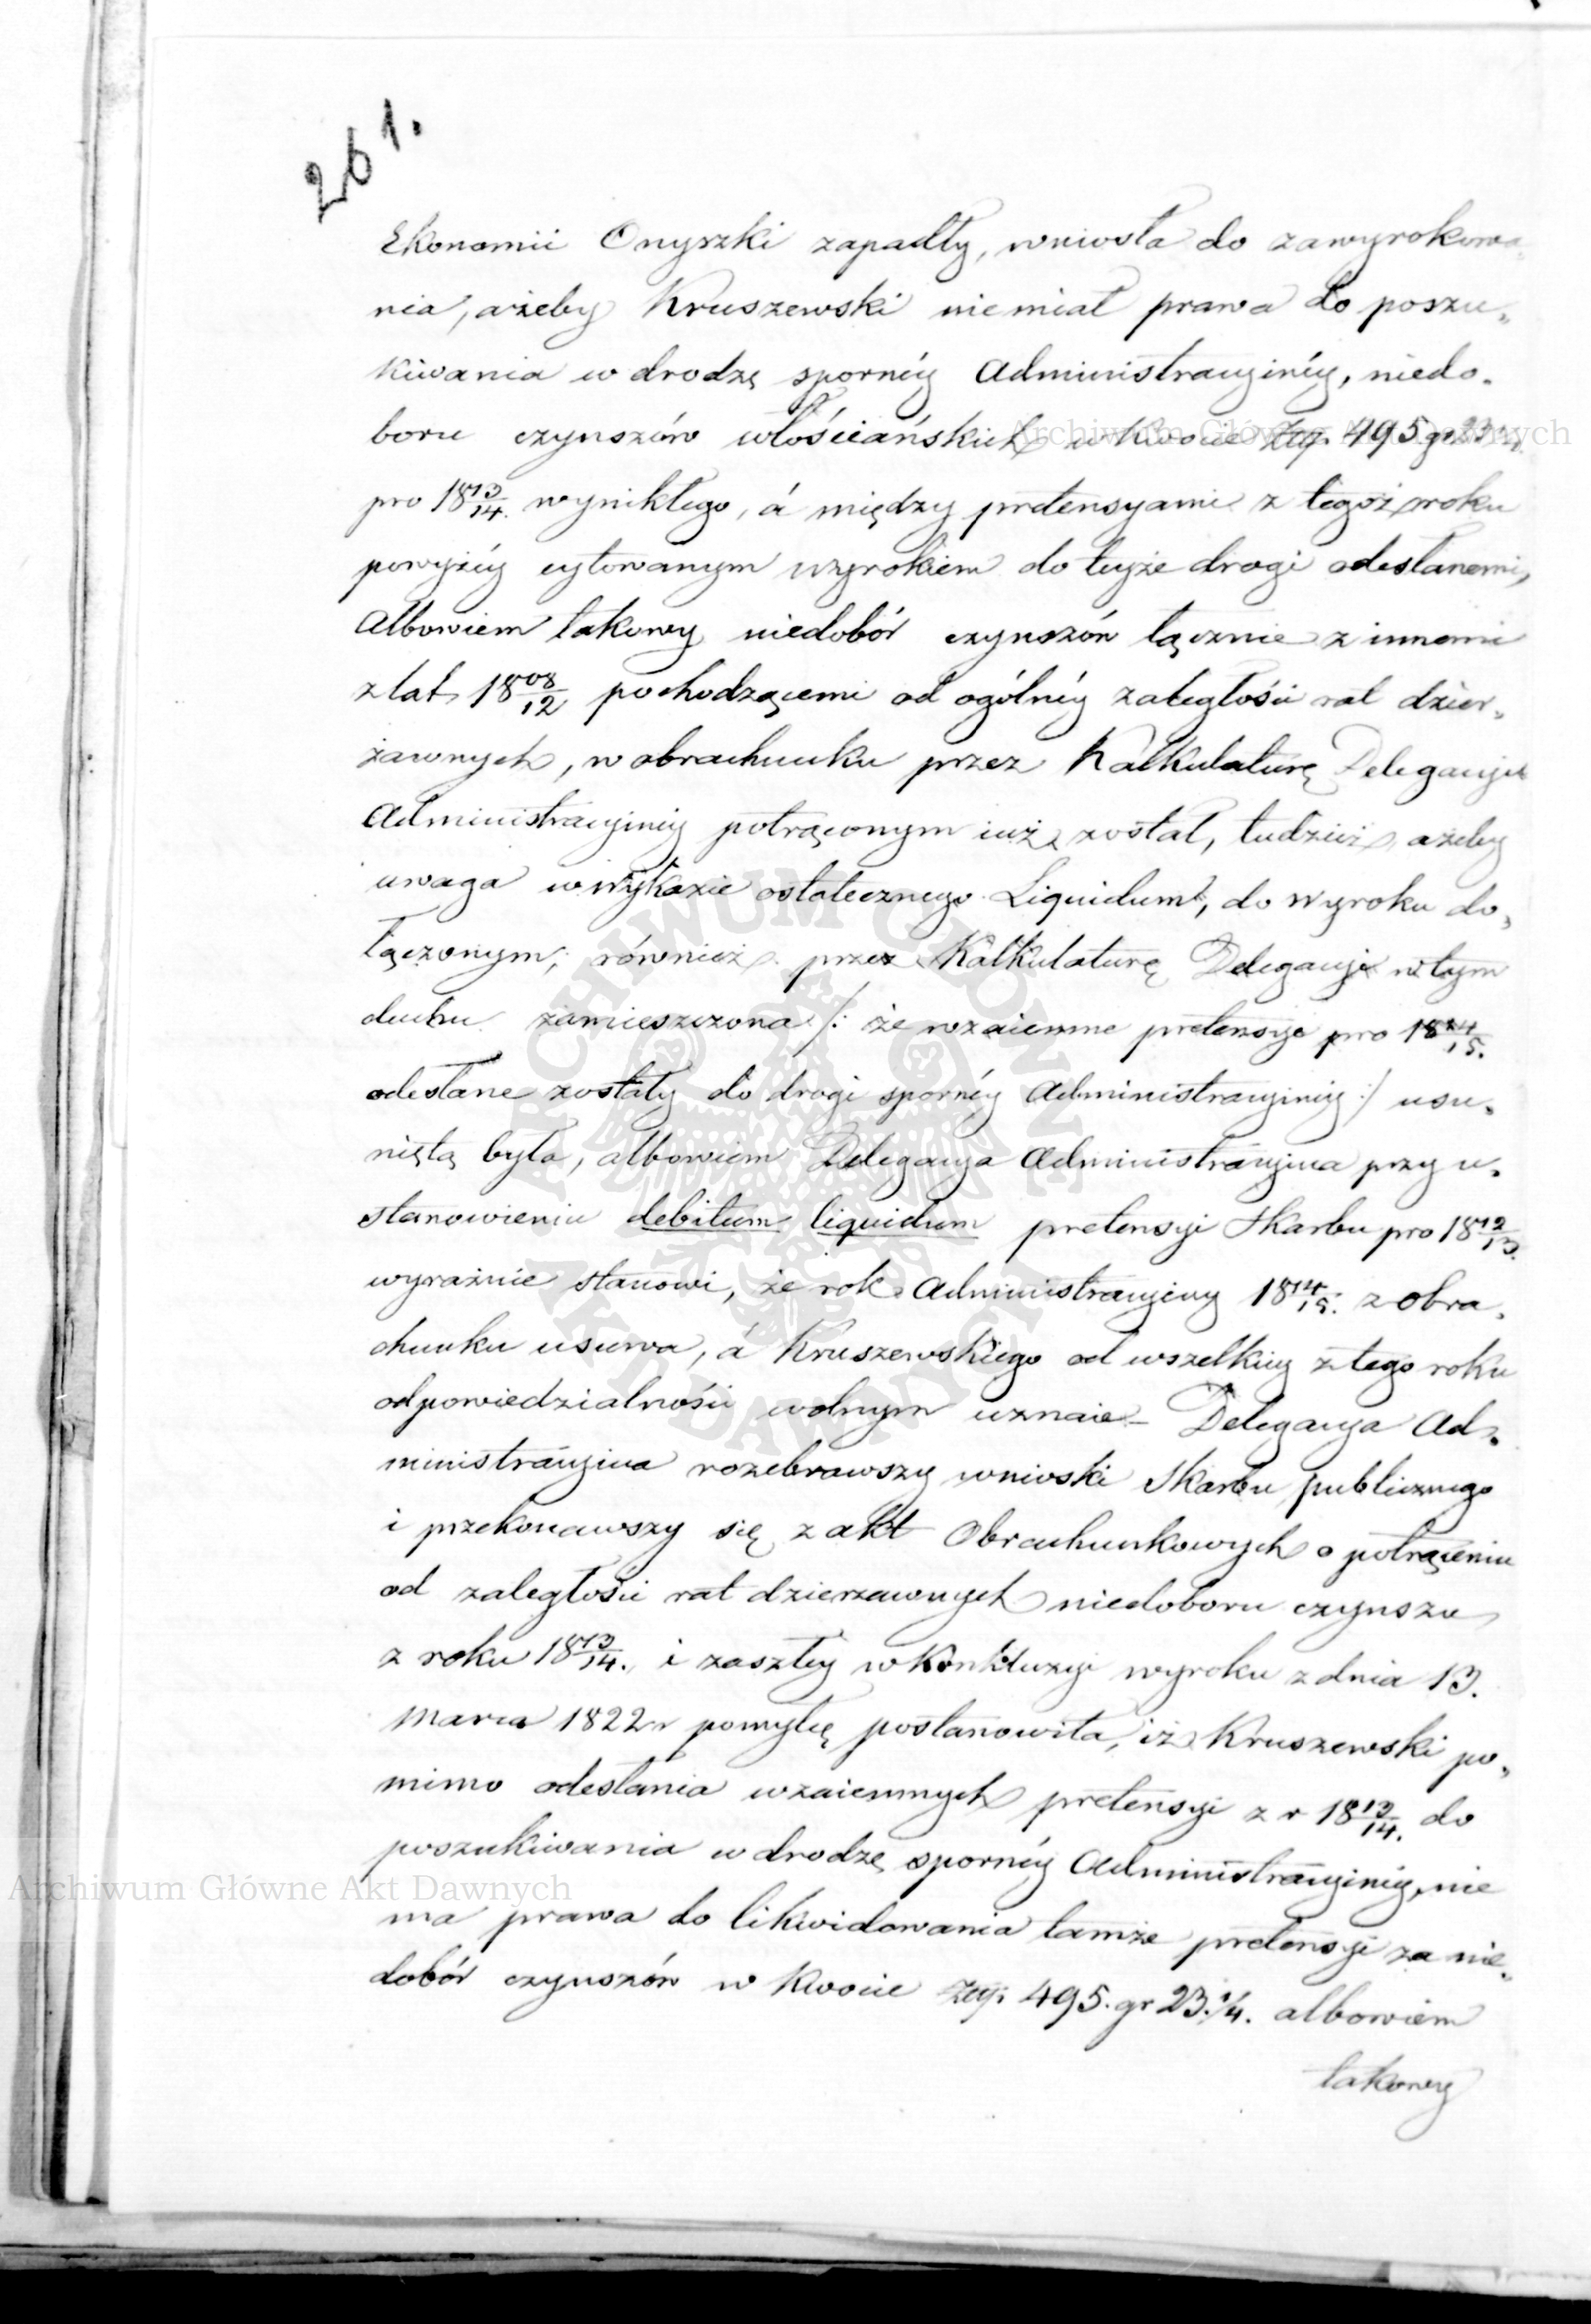 261.
Ekonomii Onyszki zapadły, wniosła do zawyrokowa
nia, ażeby Kruszewski niemiał prawa do poszu„
kiwania w drodzę spornéy Administracyinéy, niedo„
boru czynszów włościańskich w kwocie Złp. 495 gr 23 1/4
pro 18 13/14. wynikłego, á między pretensyami z tegoż roku
powyżéy cytowanym wyrokiem do teyże drogi odesłanemi,
Albowiem takowy niedobór czynszów łącznie z innemi
z lat 18 08/12 pochodzącemi od ogólnéy zaległości rat dzier„
żawnych, w obrachunku przez Kalkulaturę Delegacyi
Administracyiney potrąconym iuż został, tudzież ażeby
uwaga w wykazie ostatecznego Liquidum, do wyroku do„
łączonym, również przez Kalkulaturę Delegacyi w tym
duchu zamieszczona /: że wzaiemne pretensye pro 18 14/15.
odesłane zostały do drogi spornéy Administracyiney :/ usu„
niętą była, albowiem Delegacya Administracyina przy u„
stanowieniu debitum liquidum pretensyi Skarbu pro 18 12/13.
wyraźnie stanowi, że rok Administracyiny 18 14/15. z obra„
chunku usuwa, á Kruszewskiego od wszelkiey z tego roku
odpowiedzialności wolnym uznaie – Delegacya Ad„
ministracyina rozebrawszy wnioski Skarbu publicznego
i przekonawszy się z akt Obrachunkowych o potrąceniu
od zaległości rat dzierzawnych niedoboru czynszu
z roku 18 13/14. i zaszłey w Konkluzyi wyroku z dnia 13.
Marca 1822 r pomyłce postanowiła, iż Kruszewski po„
mimo odesłania wzaiemnych pretensyi z r 18 13/14. do
poszukiwania w drodzę spornéy Administracyiney, nie
ma prawa do likwidowania tamże pretensyi za nie„
dobór czynszów w Kwocie Złp: 495. gr 23. 1/4. albowiem
takowy
Archiwum Główne Akt Dawnych
Archiwum Główne Akt Dawnych
ARCHIWUM GŁÓWNE AKT DAWNYCH